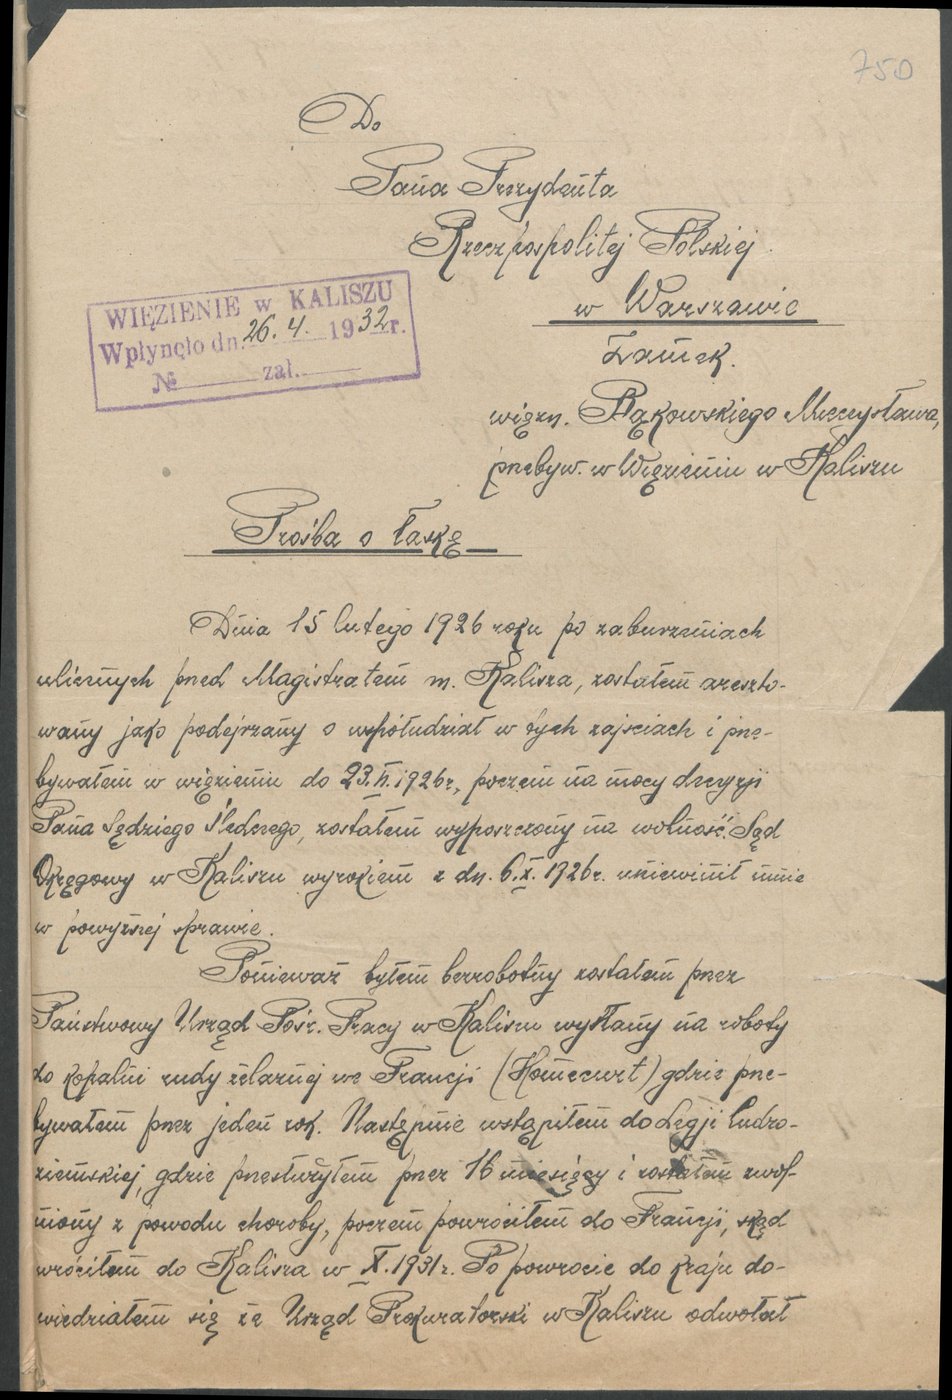 750
Do
Pana Prezydenta
Rzeczpospolitej Polskiej
w Warszawie
Zamek.
WIĘZIENIE w KALISZU
Wpłynęło dn. 26. 4. 1932 r.
№ zał.
więzn. Bąkowskiego Mieczysława,
przebyw. w Więzieniu w Kaliszu
Prośba o łaskę
Dnia 15 lutego 1926 roku po zaburzeniach
ulicznych przed Magistratem m. Kalisza, zostałem areszto-
wany jako podejrzany o współudział w tych zajściach i prze-
bywałem w więzieniu do 23.VI.1926r., poczem na mocy decyzji
Pana Sędziego Śledczego, zostałem wyposzczony na wolność. Sąd
Okręgowy w Kaliszu wyrokiem z dn. 6.X.1926r. uniewinił mnie
w powyższej sprawie.
Ponieważ byłem bezrobotny zostałem przez
Państwowy Urząd Pośr. Pracy w Kaliszu wysłany na roboty
do kopalni rudy żelaznej we Francji (Homecurt) gdzie prze-
bywałem przez jeden rok. Następnie wstąpiłem do Legji Cudzo-
ziemskiej, gdzie przesłużyłem przez 16 miesięcy i zostałem zwol-
niony z powodu choroby, poczem powróciłem do Francji, skąd
wróciłem do Kalisza w X.1931r. Po powrocie do kraju do-
wiedziałem się że Urząd Prokuratorski w Kaliszu odwołał